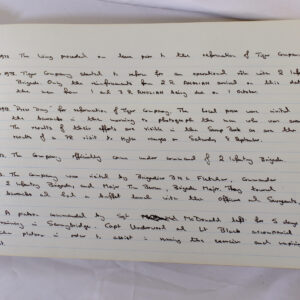 1972 The Wing proceeded on leave prior to the reformation of Tiger Company
1972 Tiger Company started to reform for an operational role with 2 Inf
Brigade Only the reinforcements from 2 R ANGLIAN arrived on this date
the men from 1 and 3 R ANGLIAN being due on 1 October
1972 Press Day for reformation of Tiger Company The local press visited
the barracks in the morning to photograph the men who were
The results of their efforts are visible in the Scrap Book as are the
results of a PR visit to Hythe ranges on Saturday 9 September.
The Company officially came under command of 2 Infantry Brigade
The Company was visited by Brigadier Fletcher, Commander
2 Infantry Brigade, and Major Tim Brigade Major. They toured
barracks and had a buffet lunch with the Officers and Sergeants,
A platoon commanded by Sgt McDonald left for 5 days
training in Sennybridge, Capt Underwood and Lt Black accompanied
the platoon in order to assist in running the exercise and